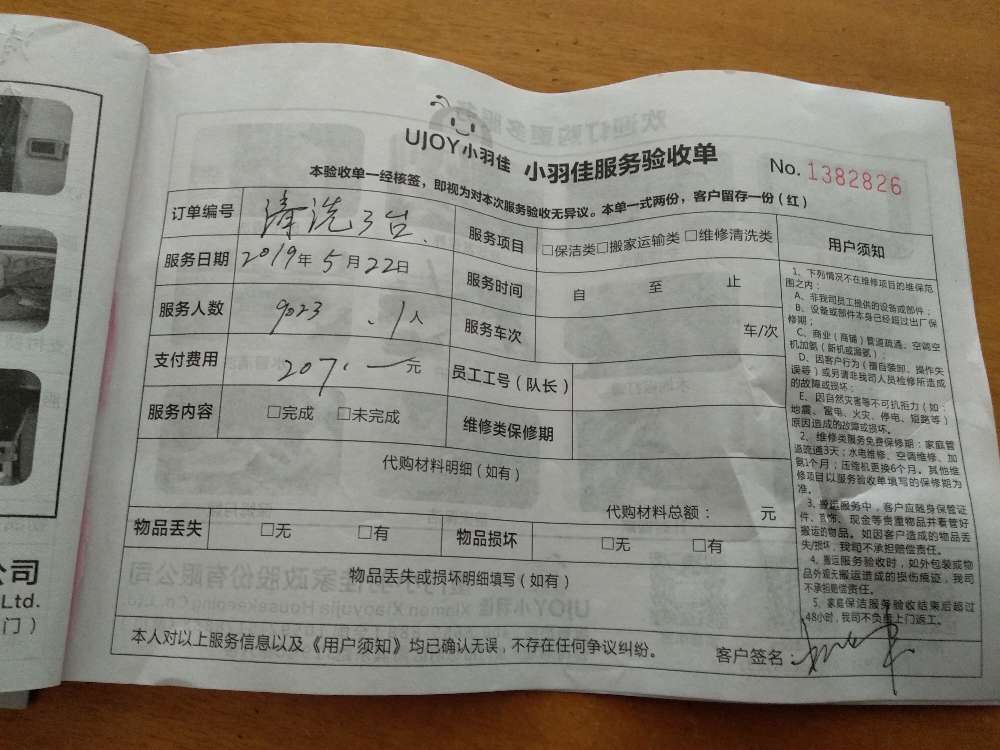 UJOY小羽佳 小羽佳服务验收单 No. 1382826
本验收单一经核签，即视为对本次服务验收无异议。本单一式两份，客户留存一份（红）
订单编号 清洗3台.
服务项目 □保洁类□搬家运输类□维修清洗类
服务日期 2019年5月22日
服务时间 自 至 止
服务人数 9023 、1人
服务车次 车/次
支付费用 207.一元
员工工号（队长）
服务内容 □完成 □未完成
维修类保修期
代购材料明细（如有）
代购材料总额： 元
物品丢失 □无 □有
物品损坏 □无 □有
物品丢失或损坏明细填写（如有）
本人对以上服务信息以及《用户须知》均已确认无误，不存在任何争议纠纷。
客户签名：
用户须知
1、下列情况不在维修项目的维保范
围之内：
A、非我司员工提供的设备或部件；
B、设备或部件本身已经超过出厂保
修期；
C、商业（商铺）管道疏通、空调空
机加氨（新机或漏氨）；
D、因客户行为（擅自装卸、操作失
误等）或另请非我司人员检修所造成
的故障或损坏；
E、因自然灾害等不可抗拒力（如：
地震、雷电、火灾、停电、短路等）
原因造成的故障或损坏。
2、维修类服务免费保修期：家庭管
道疏通3天；水电维修、空调维修、加
氨1个月；压缩机更换6个月。其他维
修项目以服务验收单填写的保修期为
准。
3、搬运服务中，客户应随身保管证
件、首饰、现金等贵重物品并看管好
搬运的物品。如因客户造成的物品丢
失/损坏，我司不承担赔偿责任。
4、搬运服务验收时，如外包装或物
品外观无搬运造成的损伤痕迹，我司
不承担赔偿责任。
5、家庭保洁服务验收结束后超过
48小时，我司不负责上门返工。
公司
Ltd.
门）